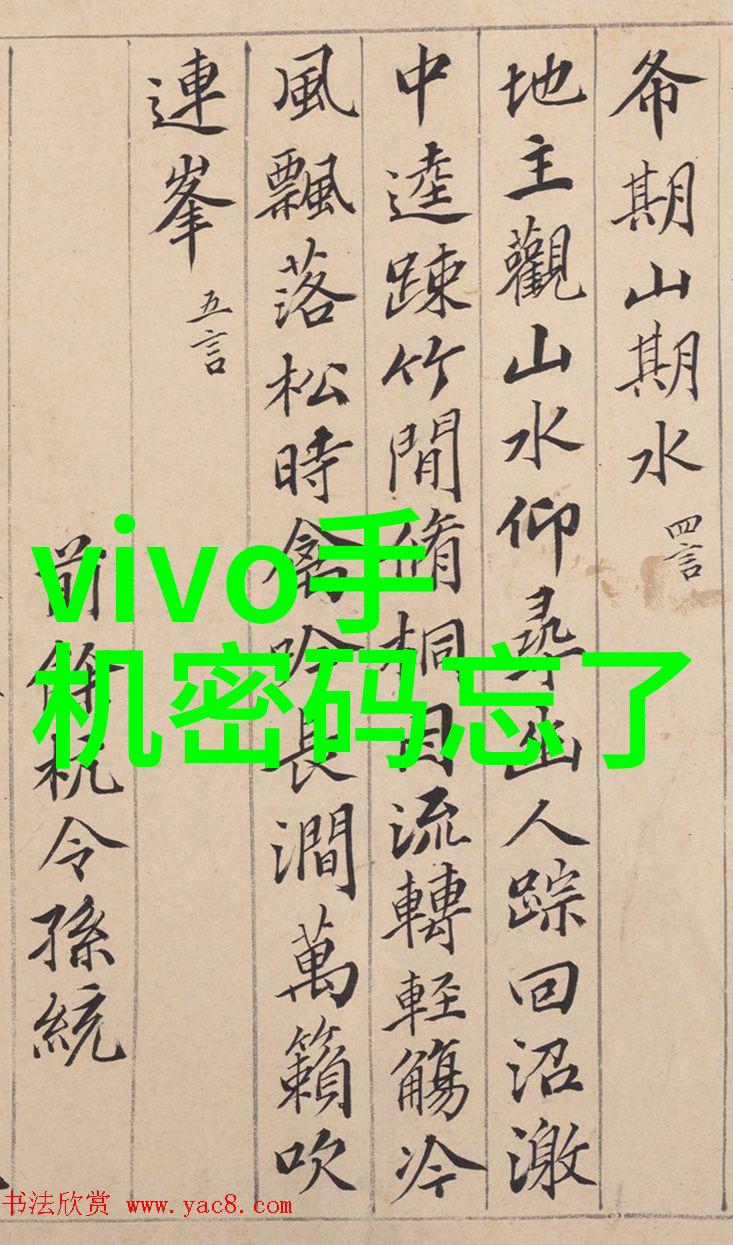 希期山期水 四言
地主觀山水仰尋幽人踪回沼激
中逵踈竹間脩桐因流轉輕觴冷
風飄落松時禽吟長澗萬籟吹
連峯 五言
前餘杭令孫統
vivo手
机密码忘了
书法欣赏 www.yac8.com